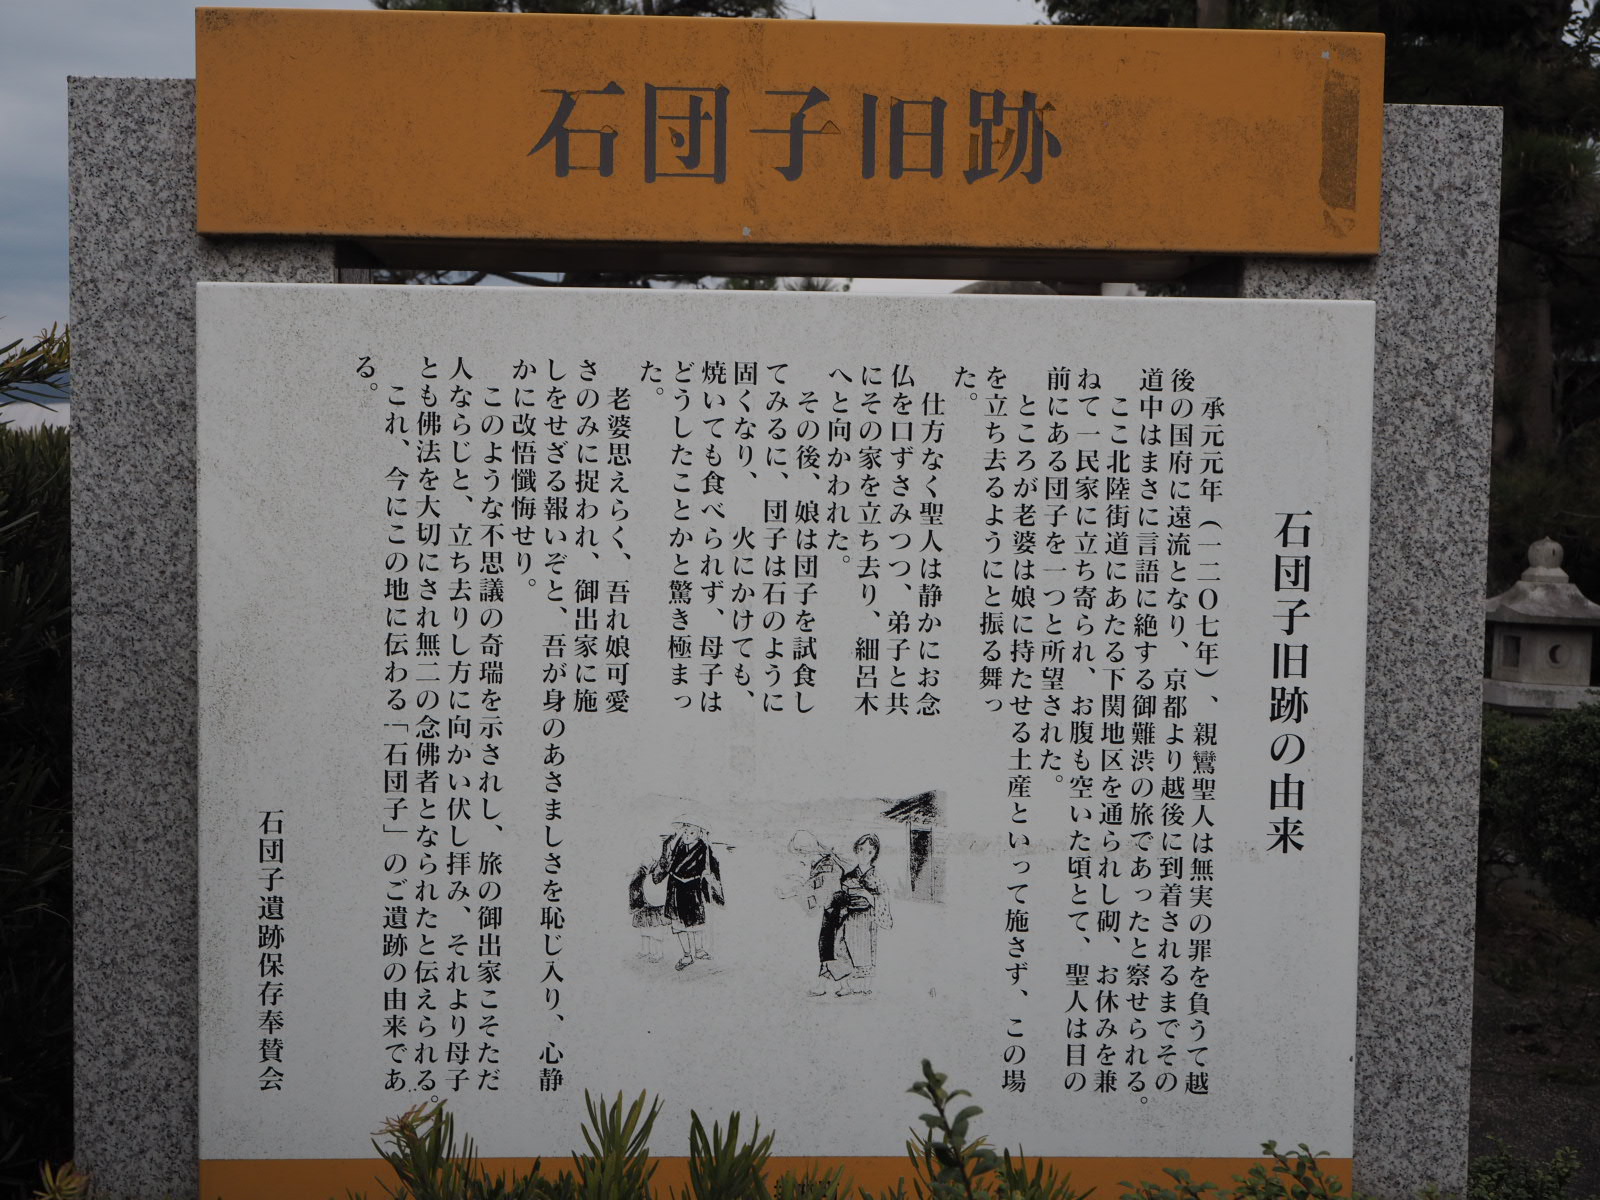 石団子旧跡
石団子旧跡の由来
承元元年（一二０七年）、親鸞聖人は無実の罪を負うて越
後の国府に遠流となり、京都より越後に到着されるまでその
道中はまさに言語に絶する御難渋の旅であったと察せられる。
ここ北陸街道にあたる下関地区を通られし砌、お休みを兼
ねて一民家に立ち寄られ、お腹も空いた頃とて、聖人は目の
前にある団子を一つと所望された。
ところが老婆は娘に持たせる土産といって施さず、この場
を立ち去るようにと振る舞っ
た。
仕方なく聖人は静かにお念
仏を口ずさみつつ、弟子と共
にその家を立ち去り、細呂木
へと向かわれた。
その後、娘は団子を試食し
てみるに、団子は石のように
固くなり、火にかけても、
焼いても食べられず、母子は
どうしたことかと驚き極まっ
た。
老婆思えらく、吾れ娘可愛
さのみに捉われ、御出家に施
しをせざる報いぞと、吾が身のあさましさを恥じ入り、心静
かに改悟懺悔せり。
このような不思議の奇瑞を示されし、旅の御出家こそただ
人ならじと、立ち去りし方に向かい伏し拝み、それより母子
とも佛法を大切にされ無二の念佛者となられたと伝えられる。
これ、今にこの地に伝わる「石団子」のご遺跡の由来であ
る。
石団子遺跡保存奉賛会